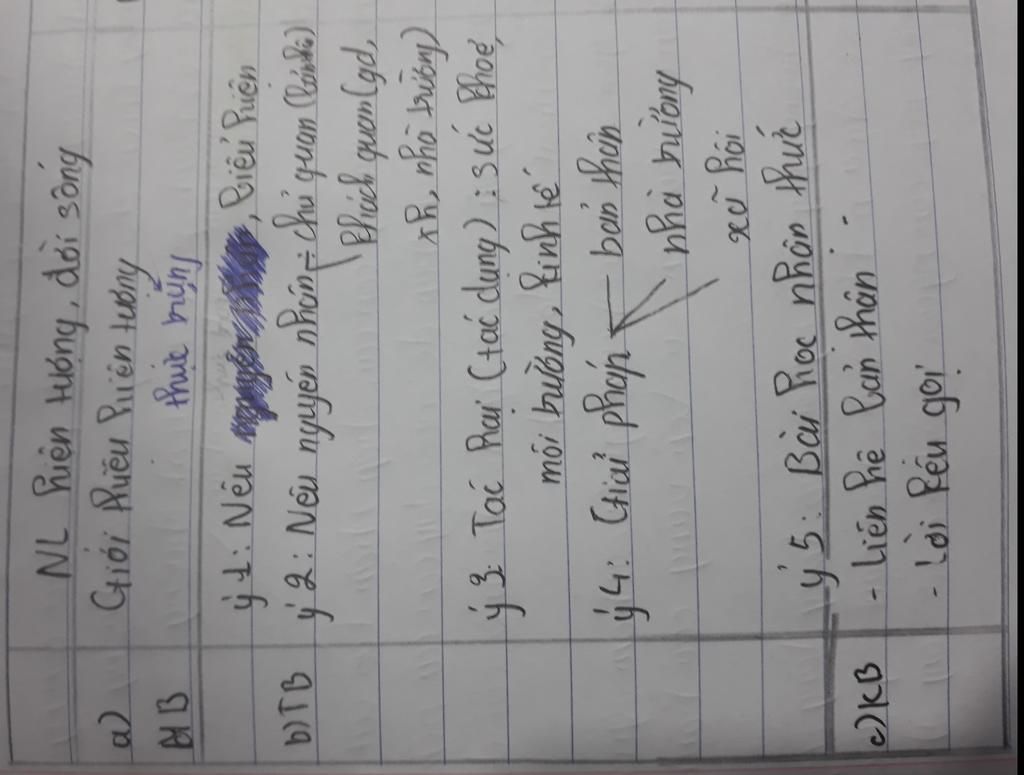 NL hiện tượng, đời sống
a) Giới thiệu hiện tượng
MB thực trạng
ý 1: Nêu , biểu hiện
b) TB ý 2: Nêu nguyên nhân - chủ quan (bản thân)
khách quan (gđ,
xh, nhà trường)
ý 3: Tác hại (tác dụng): sức khoẻ,
môi trường, kinh tế
ý 4: Giải pháp - bản thân
nhà trường
xã hội
ý 5: Bài học nhận thức
c) KB - Liên hệ bản thân.
- Lời kêu gọi.